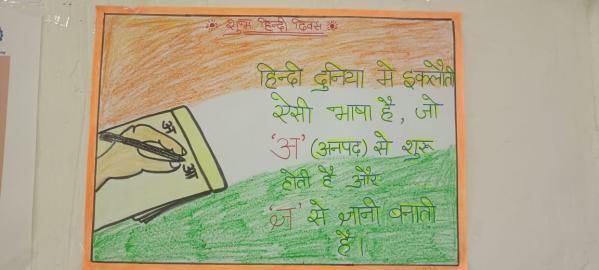 शुभ हिन्दी दिवस
हिन्दी दुनिया मे इकलौती
ऐसी भाषा है, जो
'अ' (अनपढ़) से शुरू
होती है और
'ज्ञ' से ज्ञानी बनाती
है।
अ
आ